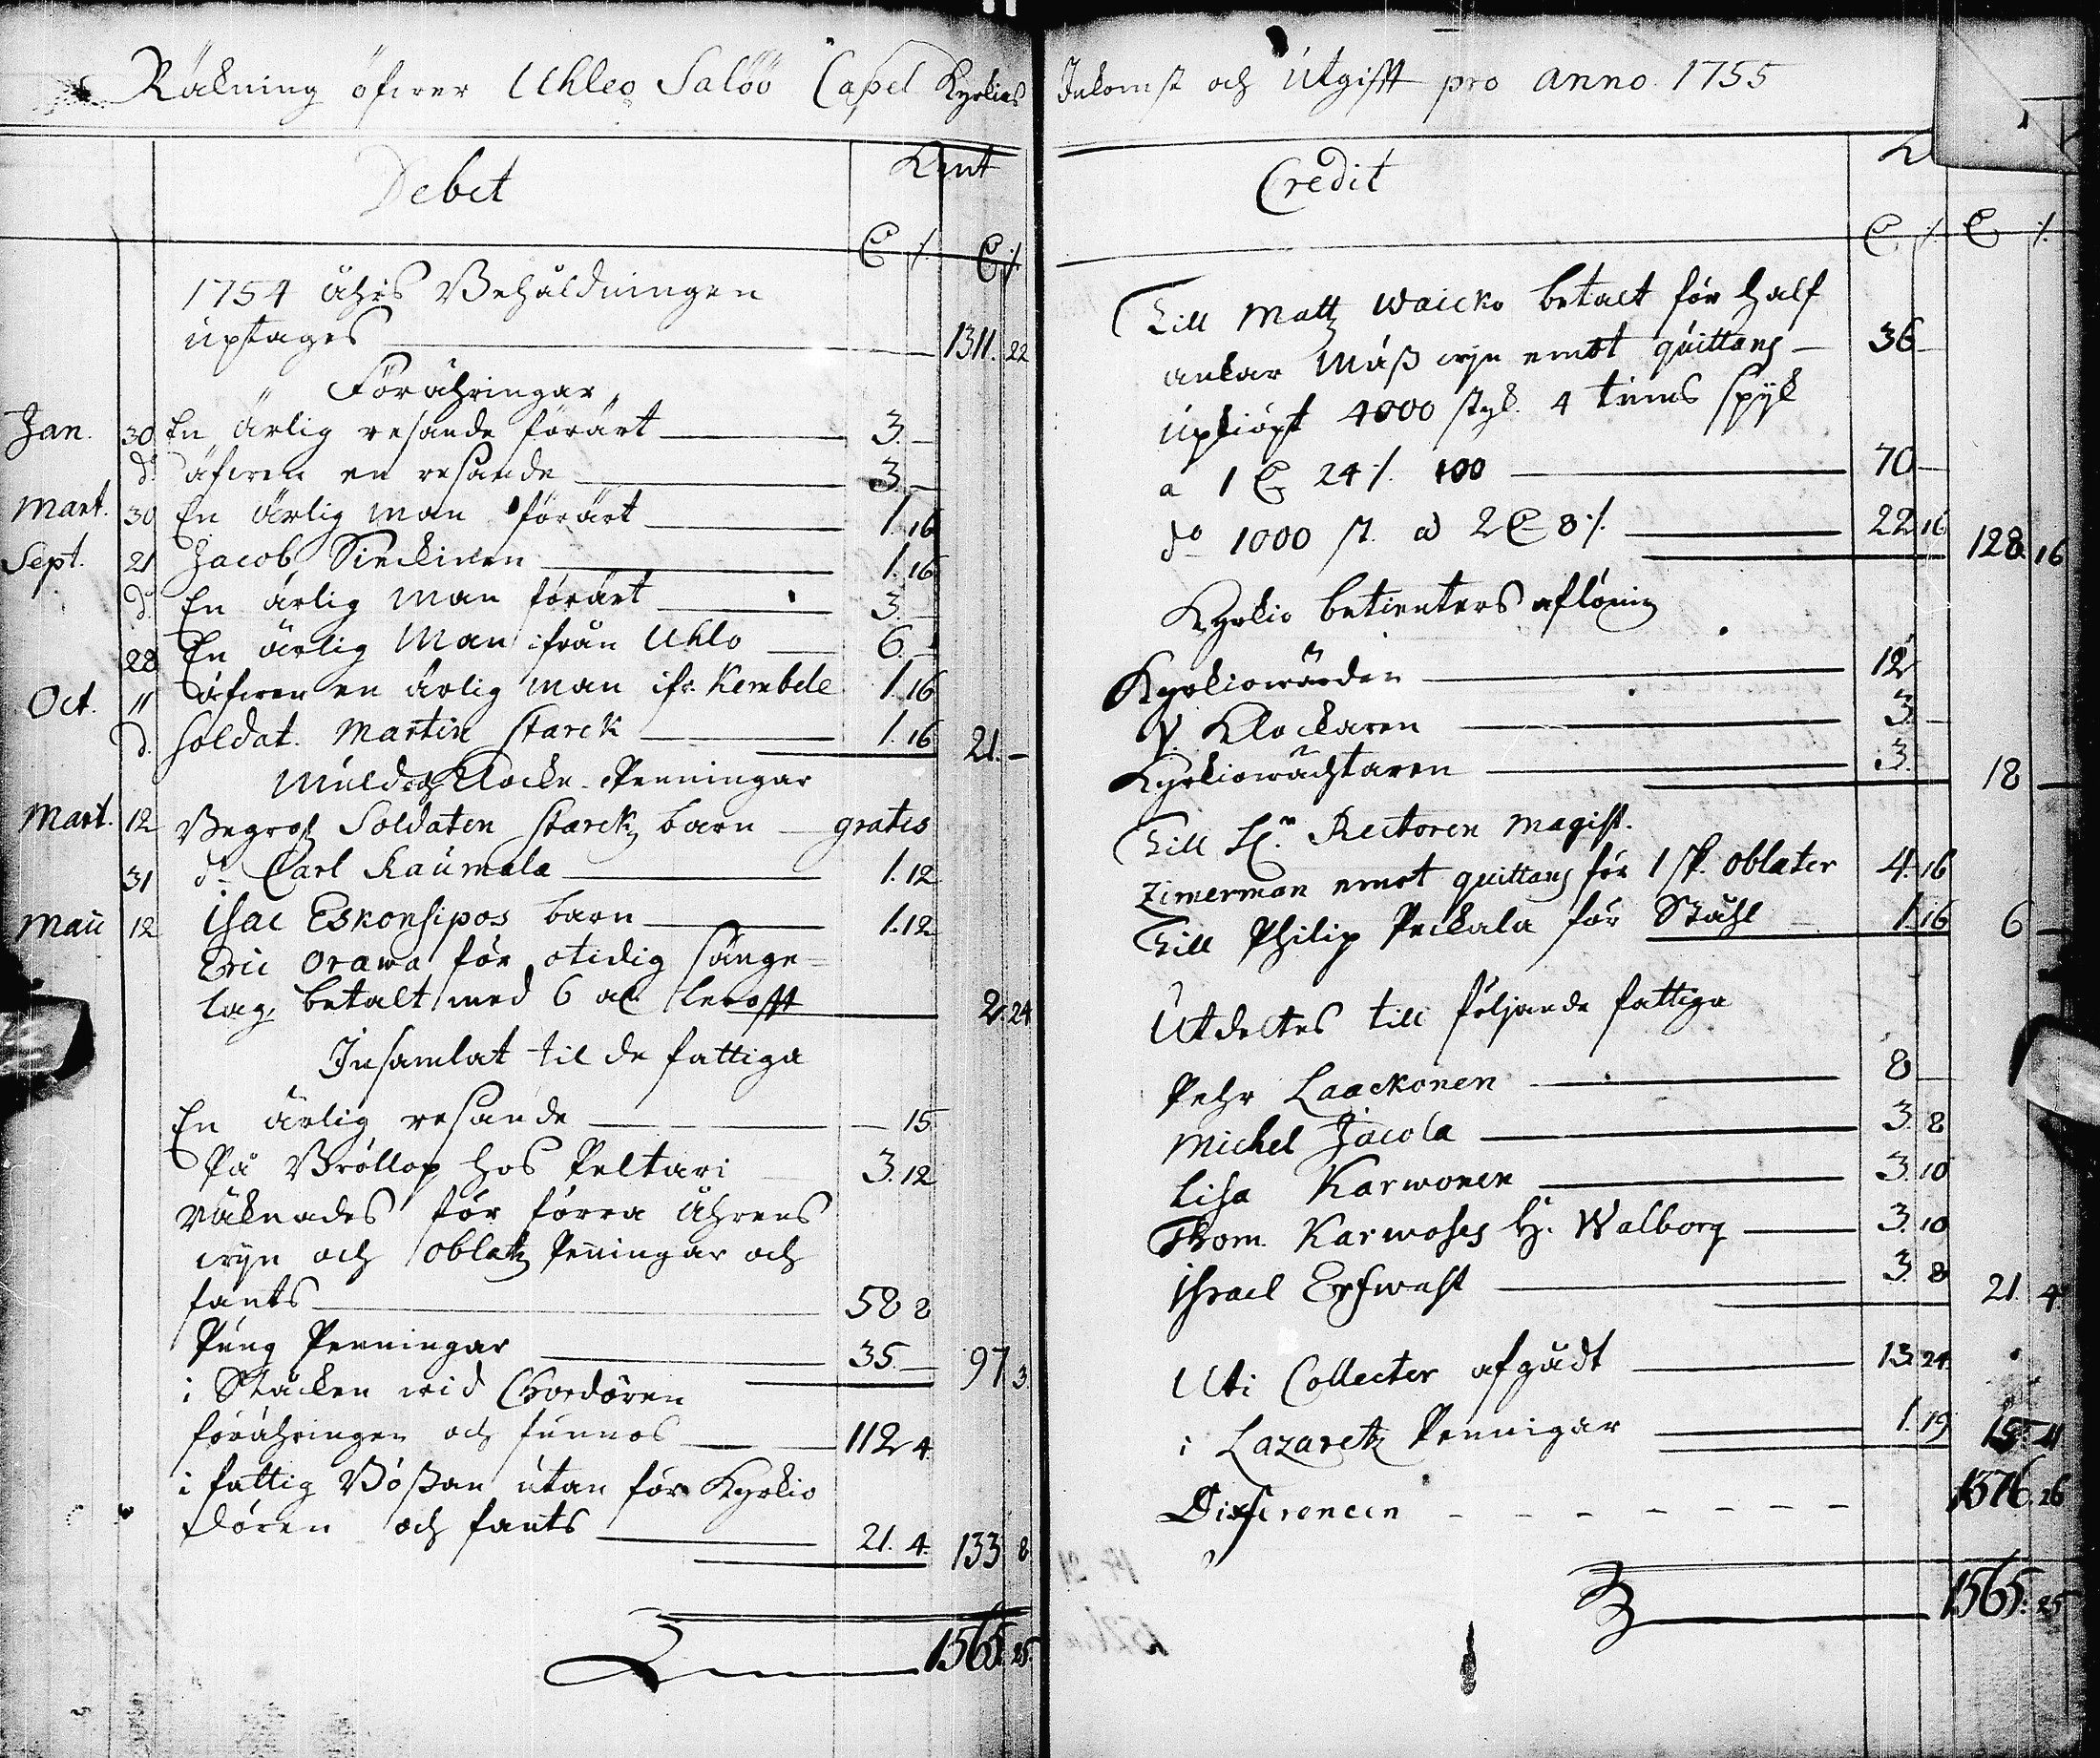 Räkning öfwer Uhleo Saloö Capel Kyrkios
Debet
Kmt
1754 åhrs Behåldningen
uptages 1311. 22
Förähringar
Jan. 30 En ärlig resande förärt 3. –
d:o äfwen en resande 3. –
Mart. 30 En ärlig man förärt 1. 16
Sept. 21 Jacob Sirckinen 1. 16
d. En ärlig man förärt 3. –
28 En ärlig Man ifrån Uhlo 6. –
Oct. 11 äfwen en ärlig man ifr. Kembele 1. 16
d. Soldat. Martin Starck 1. 16 21. –
Muld och Klocke-Penningar
Mart. 12 Begrof Soldaten Starckz barn gratis
31 d:o Carl Raumala 1. 12
Maii 12 Isac Eskonsipos barn 1. 12
Eric Orawa för otidig sänge-
lag, betalt med 6 al. lerofft 2. 24
Insamlat til de fattiga
En ärlig resande – 15
På Bröllop hos Peltari 3. 12
Räknades för förra Åhrens
wijn och oblatz Penningar och
fants 58 8
Pung Penningar 35. – 97 3.
i Stäcken wid Chordören
förähringen och funnos 112 4.
i fattig Bößan utan för Kyrkio
dören och fants 21. 4. 133 8
1565. 25.
Inkomst och Utgifft pro anno. 1755
Credit
Till Mattz Waicko betalt för half
ankar Mäß wijn emot quittans – 36 –
Upkiöpt 4000 styk. 4 tums spijk
a 1 24 100 70 –
d:o 1000 st. a 2 8 22 16 128. 16
Kyrkio betienters aflöning
Kyrkiowärden 12
V. Klockaren 3. –
Kyrkiowächtaren 3. 18 –
Till H:r Rectoren Magist.
Zimerman emot quittans för 1 st. oblater 4. 16
Till Philip Peckala för Stähl 1. 16 6 –
Utdeltes till följande fattiga
Pehr Laackonen 8 –
Michel Jacola 3. 8
Lisa Karwonen 3. 10
Thom. Karwoses H. Walborg 3. 10
Israel Erfwast 3. 8 21. 4
Uti Collecter afgådt 13. 24.
i Lazaretz Pennigar 1. 19 15. 11
Differencen 1376. 26
1565. 25